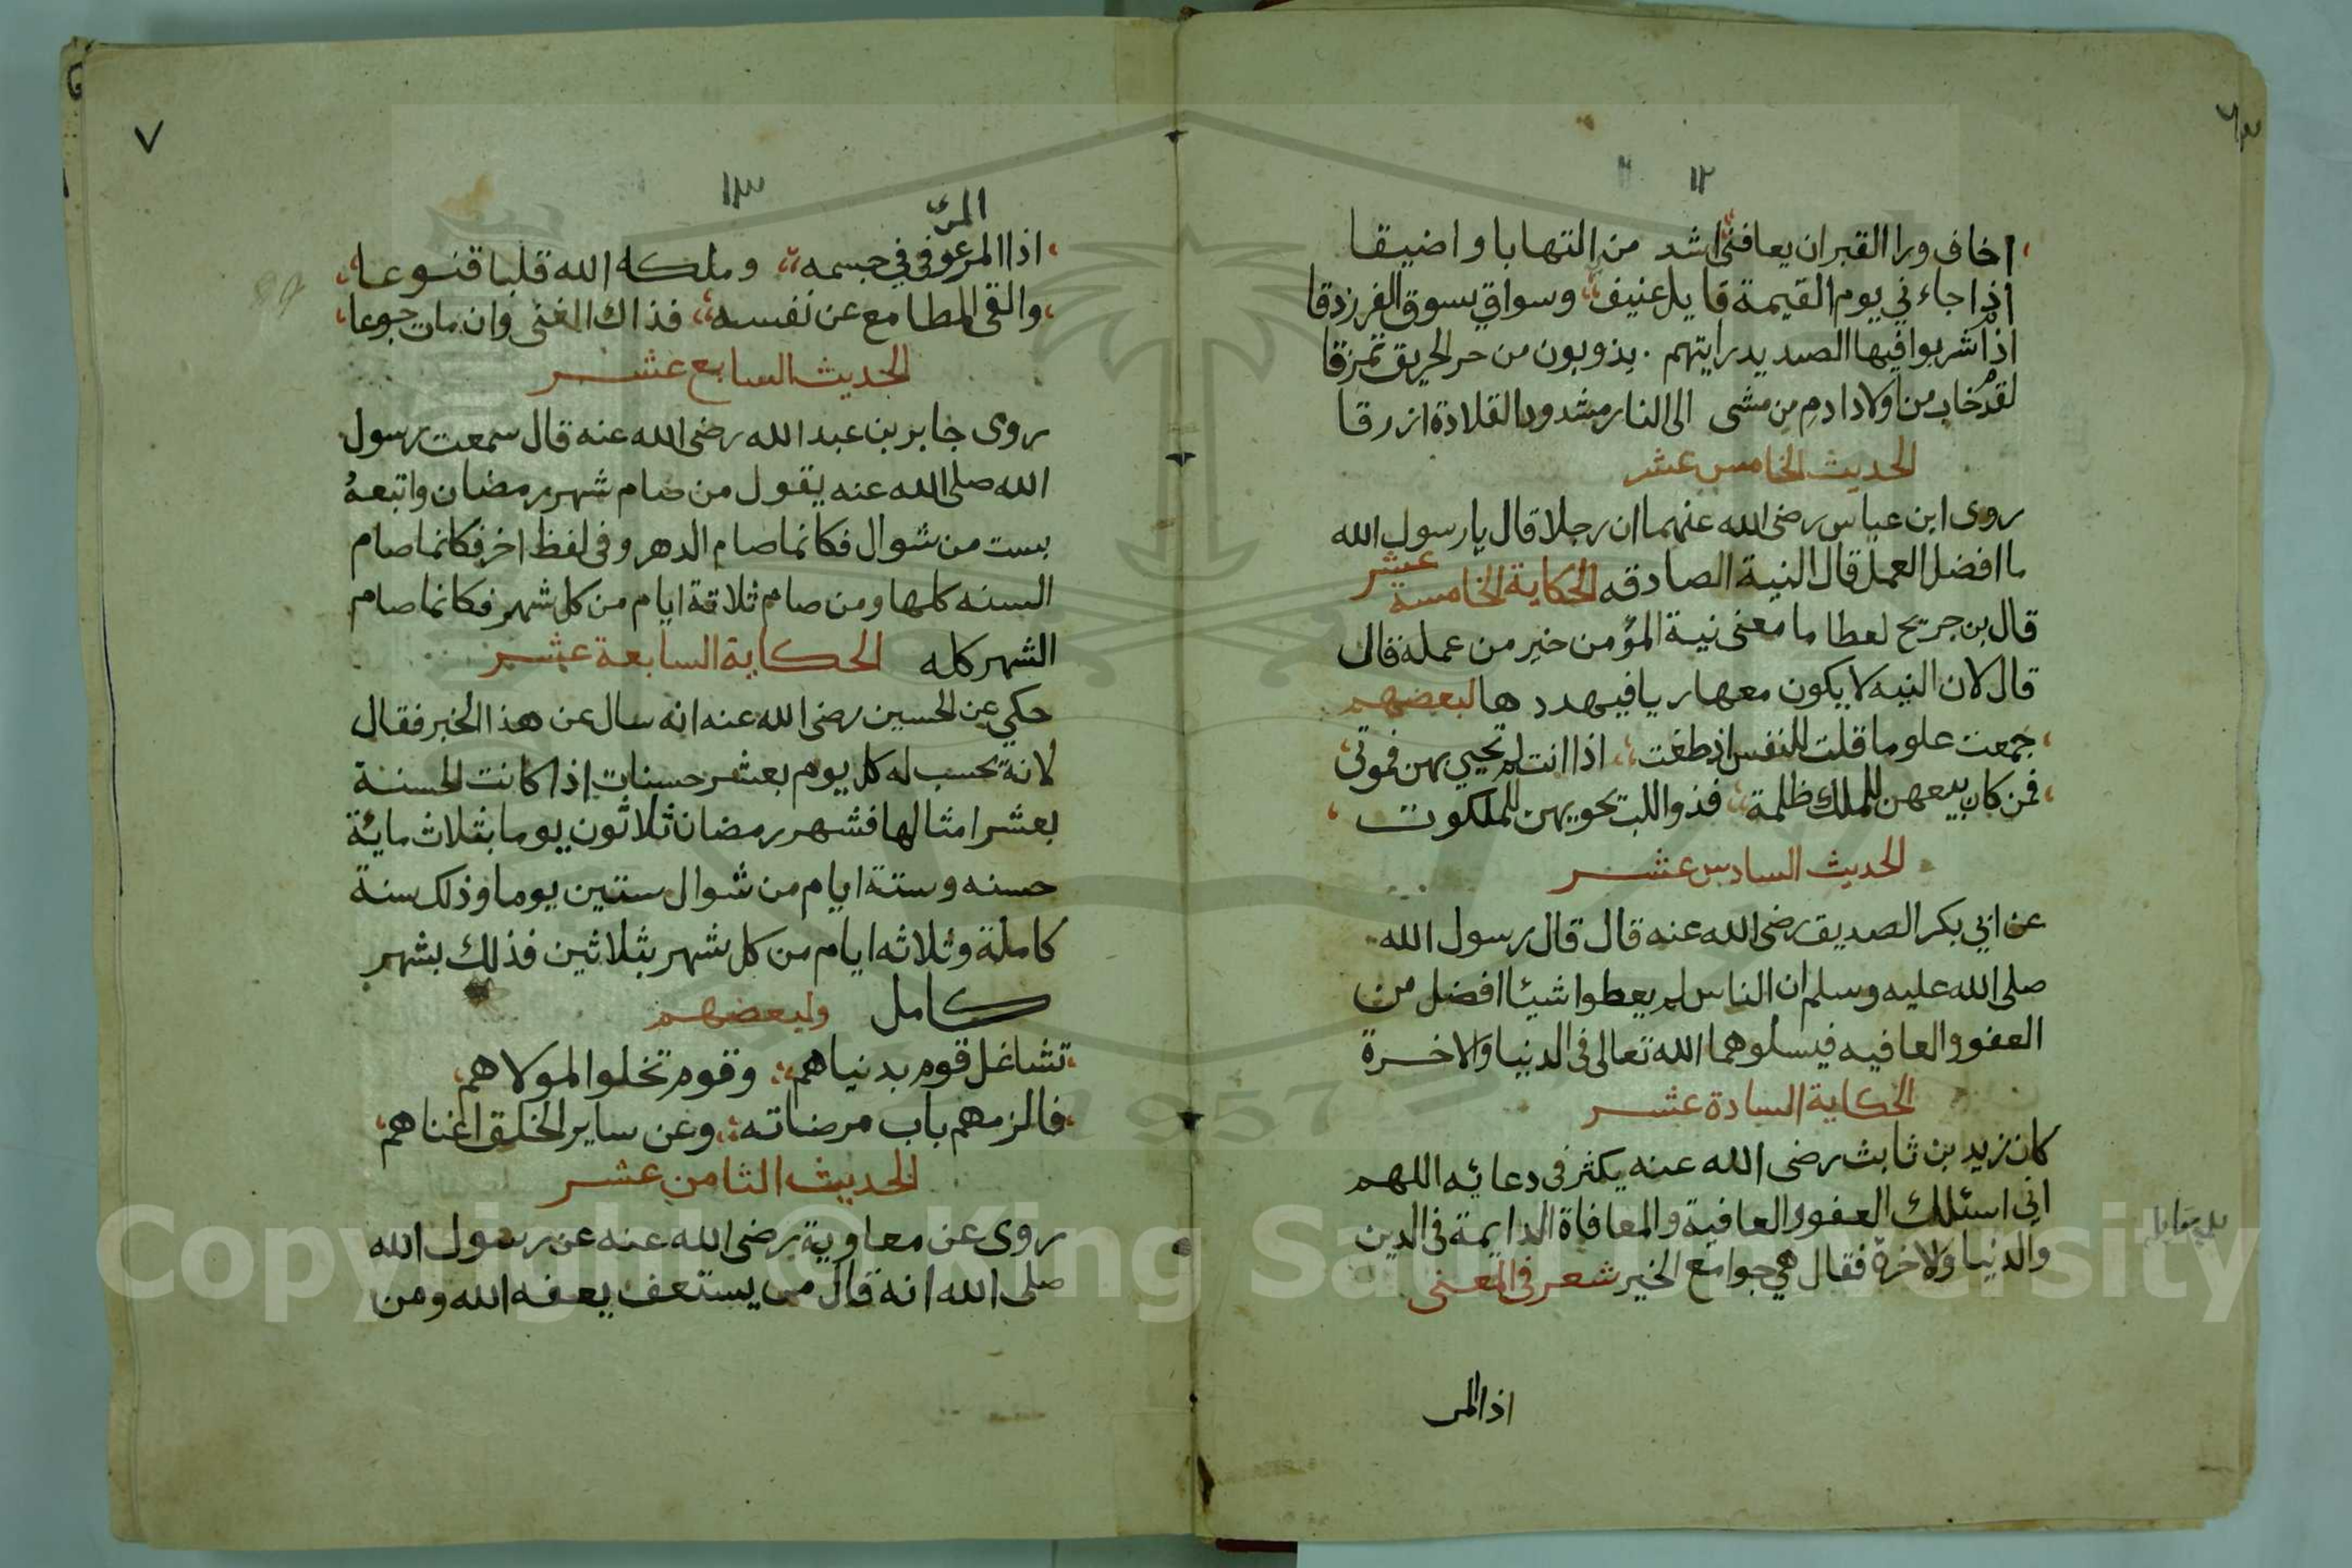 ١٢
اخاف ورا القبر ان يعافنى اشد من التهابا واضيقا
اذا جاءني يوم القيمة قايل عنيف وسواق يسوق الفرزدقا
اذا شربوا فيها الصديد رايتهم . يذوبون من حر الحريق تمزقا
لقد خاب من اولاد ادم من مشى الى النار مشدود القلادة ازرقا
الحديث الخامس عشر
روى ابن عباس رضى الله عنهما ان رجلا قال يا رسول الله
ما افضل العمل قال النية الصادقه الحكاية الخامسة عشر
قال بن جريح لعطا ما معنى نية المؤمن خير من عمله قال
قال لان النيه لا يكون معها ريا فيهددها لبعضهم
جمعت علوما قلت للنفس اذ طغت اذا انت لم تحيي بهن فموتى
فمن كان يبيعهن للملك ظلمة فذو اللب تحويهن للملكوت
الحديث السادس عشر
عن ابي بكر الصديق رضى الله عنه قال قال رسول الله
صلى الله عليه وسلم ان الناس لم يعطوا شيئا افضل من
العفو والعافيه فيسلوهما الله تعالى فى الدنيا والاخرة
الحكاية السادة عشر
كان زيد بن ثابث رضى الله عنه يكثر فى دعائه اللهم
اني اسئلك العفو والعافية والمعافاة الدايمة فى الدين
والدنيا والاخرة فقال هي جوامع الخير شعر فى المعنى
اذا المر
٧
١٣
المرء
اذا المر عوفى في جسمه وملكه الله قلبا قنوعا
والقى المطامع عن نفسه فذاك الغنى وان مات جوعا
الحديث السابع عشر
روى جابر بن عبد الله رضى الله عنه قال سمعت رسول
الله صلى الله عنه يقول من صام شهر رمضان واتبعه
بست من شوال فكانما صام الدهر وفى لفظ اخر فكانما صام
السنه كلها ومن صام ثلاثة ايام من كل شهر فكانما صام
الشهر كله الحكاية السابعة عشر
حكي عن الحسين رضى الله عنه انه سال عن هذا الخبر فقال
لانه تحسب له كل يوم بعشر حسنات اذا كانت الحسنة
بعشر امثالها فشهر رمضان ثلاثون يوما بثلاث مائة
حسنه وستة ايام من شوال ستين يوما وذلك سنة
كاملة وثلاثه ايام من كل شهر بثلاثين فذلك بشهر
كامل ولبعضهم
تشاغل قوم بدنياهم وقوم تخلوا لمولاهم
فالزمهم باب مرضاته وعن ساير الخلق اغناهم
الحديث الثامن عشر
روى عن معاوية رضى الله عنه عن رسول الله
صلى الله انه قال من يستعف يعفه الله ومن
1957
Copyright © King Saud University